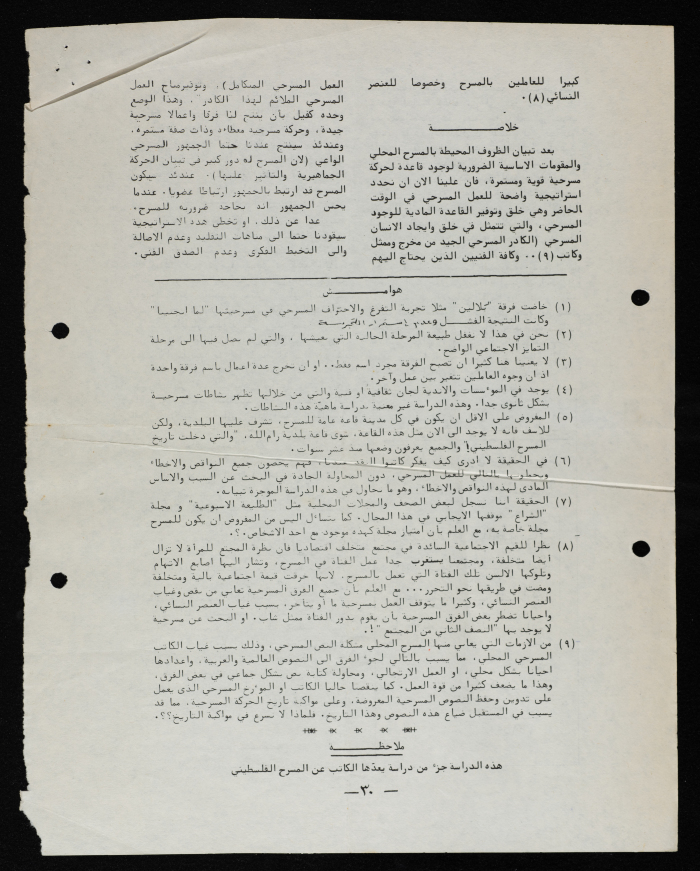 كبيرا للعاملين بالمسرح وخصوصا للعنصر
النسائي (٨)٠
خلاصة
بعد تبيان الظروف المحيطة بالمسرح المحلي
والمقومات الاساسية الضرورية لوجود قاعدة لحركة
مسرحية قوية ومستمرة، فان علينا الان ان نحدد
استراتيجية واضحة للعمل المسرحي في الوقت
الحاضر وهي خلق وتوفير القاعدة المادية للوجود
المسرحي، والتي تتمثل في خلق وايجاد الانسان
المسرحي (الكادر المسرحي الجيد من مخرج وممثل
وكاتب (٩)٠٠ وكافة الفنيين الذين يحتاج اليهم
العمل المسرحي المتكامل)، وتوفير مناخ العمل
المسرحي الملائم لهذا "الكادر"، وهذا الوضع
وحده كفيل بأن ينتج لنا فرقا واعمالا مسرحية
جيدة، وحركة مسرحية معطاءة وذات صفة مستمرة،
وعندئذ سينتج عندنا حتما الجمهور المسرحي
الواعي (لان المسرح له دور كبير في تبيان الحركة
الجماهيرية والتأثير عليها)٠ عندئذ سيكون
المسرح قد ارتبط بالجمهور ارتباطا عضويا، عندما
يحس الجمهور انه بحاجة ضرورية للمسرح٠
عدا عن ذلك، او تخطي هذه الاستراتيجية
سيقودنا حتما الى متاهات التقليد وعدم الاصالة
والى التخبط الفكري وعدم الصدق الفني٠
هوامش
(١) خاضت فرقة "بلالين" مثلا تجربة التفرغ والاحتراف المسرحي في مسرحيتها "لما انجنينا"
وكانت النتيجة الفشل وعدم استمرار التجربة
(٢) نحن في هذا لا نغفل طبيعة المرحلة الحالية التي نعيشها، والتي لم نصل فيها الى مرحلة
التمايز الاجتماعي الواضح٠
(٣) لا يعنينا هنا كثيرا ان تصبح الفرقة مجرد اسم فقط٠٠ او ان تخرج عدة اعمال باسم فرقة واحدة
اذ ان وجوه العاملين تتغير بين عمل وآخر٠
(٤) يوجد في المؤسسات والاندية لجان ثقافية او فنية والتي من خلالها تظهر نشاطات مسرحية
بشكل ثانوي جدا، وهذه الدراسة غير معنية بدراسة ماهية هذه النشاطات٠
(٥) المفروض على الاقل ان يكون في كل مدينة قاعة عامة للمسرح، تشرف عليها البلدية، ولكن
للاسف فانه لا يوجد الى الان مثل هذه القاعة، سوى قاعة بلدية رام الله، "والتي دخلت تاريخ
المسرح الفلسطيني"! والجميع يعرفون وضعها منذ عشر سنوات٠
(٦) في الحقيقة لا ادري كيف يفكر كاتبوا النقد عندنا، فهم يحصون جميع النواقص والاخطاء
بالتالي للعمل المسرحي، دون المحاولة الجادة في البحث عن السبب والاساس
المادي لهذه النواقص والاخطاء، وهو ما نحاول في هذه الدراسة الموجزة تبيانه٠
(٧) الحقيقة اننا نسجل لبعض الصحف والمجلات المحلية مثل "الطليعة الاسبوعية" و مجلة
"الشراع" موقفها الايجابي في هذا المجال٠ كما نتساءل اليس من المفروض ان يكون للمسرح
مجلة خاصة به، مع العلم بأن امتياز مجلة كهذه موجود مع احد الاشخاص٠؟٠
(٨) نظرا للقيم الاجتماعية السائدة في مجتمع متخلف اقتصاديا فان نظرة المجتمع للمرأة لا تزال
ايضا متخلفة، ومجتمعنا يستغرب جدا عمل الفتاة في المسرح، وتشار اليها اصابع الاتهام
وتلوكها الالسن تلك الفتاة التي تعمل بالمسرح، لانها خرقت قيمة اجتماعية بالية ومتخلفة
ومضت في طريقها نحو التحرر٠٠٠ مع العلم بأن جميع الفرق المسرحية تعاني من نقص وغياب
العنصر النسائي، وكثيرا ما يتوقف العمل بمسرحية ما أو يتأخر، بسبب غياب العنصر النسائي،
واحيانا تضطر بعض الفرق المسرحية بأن يقوم بدور الفتاة ممثل شاب، او البحث عن مسرحية
لا يوجد بها "النصف الثاني من المجتمع"!٠
(٩) من الازمات التي يعاني منها المسرح المحلي مشكلة النص المسرحي، وذلك بسبب غياب الكاتب
المسرحي المحلي، مما يسبب بالتالي لجوء الفرق الى النصوص العالمية والعربية، واعدادها
احيانا بشكل محلي، او العمل الارتجالي، ومحاولة كتابة نص بشكل جماعي في بعض الفرق،
وهذا ما يضعف كثيرا من قوة العمل٠ كما ينقصنا حاليا الكاتب او المؤرخ المسرحي الذي يعمل
على تدوين وحفظ النصوص المسرحية المعروضة، وعلى مواكبة تاريخ الحركة المسرحية، مما قد
يسبب في المستقبل ضياع هذه النصوص وهذا التاريخ، فلماذا لا نسرع في مواكبة التاريخ؟؟٠
ملاحظة
هذه الدراسة جزء من دراسة يعدّها الكاتب عن المسرح الفلسطيني
— ٣٠ —